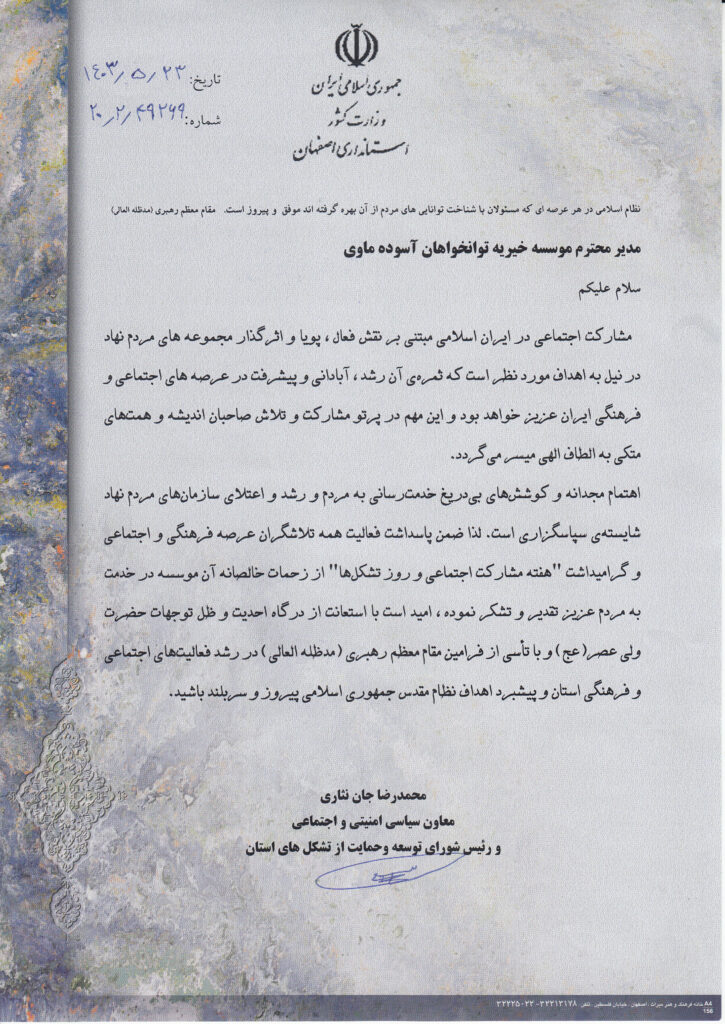 جمهوری اسلامی ایران
وزارت کشور
استانداری اصفهان
تاریخ: ۱۴۰۳/۵/۲۳
شماره: ۲۰/۲/۴۹۲۶۹
نظام اسلامی در هر عرصه ای که مسئولان با شناخت توانایی های مردم از آن بهره گرفته اند موفق و پیروز است. مقام معظم رهبری (مدظله العالی)
مدیر محترم موسسه خیریه توانخواهان آسوده ماوی
سلام علیکم
مشارکت اجتماعی در ایران اسلامی مبتنی بر نقش فعال ، پویا و اثرگذار مجموعه های مردم نهاد
در نیل به اهداف مورد نظر است که ثمره‌ی آن رشد ، آبادانی و پیشرفت در عرصه های اجتماعی و
فرهنگی ایران عزیز خواهد بود و این مهم در پرتو مشارکت و تلاش صاحبان اندیشه و همت‌های
متکی به الطاف الهی میسر می‌گردد.
اهتمام مجدانه و کوشش‌های بی‌دریغ خدمت‌رسانی به مردم و رشد و اعتلای سازمان‌های مردم نهاد
شایسته‌ی سپاسگزاری است. لذا ضمن پاسداشت فعالیت همه تلاشگران عرصه فرهنگی و اجتماعی
و گرامیداشت "هفته مشارکت اجتماعی و روز تشکل‌ها" از زحمات خالصانه آن موسسه در خدمت
به مردم عزیز تقدیر و تشکر نموده ، امید است با استعانت از درگاه احدیت و ظل توجهات حضرت
ولی عصر(عج) و با تأسی از فرامین مقام معظم رهبری (مدظله العالی) در رشد فعالیت‌های اجتماعی
و فرهنگی استان و پیشبرد اهداف نظام مقدس جمهوری اسلامی پیروز و سربلند باشید.
محمدرضا جان نثاری
معاون سیاسی امنیتی و اجتماعی
و رئیس شورای توسعه وحمایت از تشکل های استان
A4 خانه فرهنگ و هنر میراث ، اصفهان ، خیابان فلسطین ، تلفن: ۳۲۲۱۳۱۷۸-۳۲۲۲۵۰۲۲
156